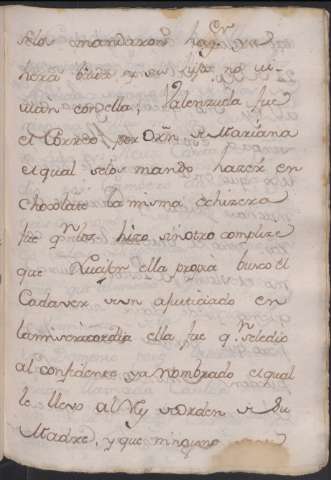 selo mandaron hazer
viuan con ella; Valenzuela fue
el Correo por Orn. de Mariana
el qual selo mando hazer en
chocolate la misma echizera
fue qn. los hizo sin otro complize
que Lucifer ella propia busco el
Cadaver de un ajusticiado en
la misericordia ella fue qn. se le dio
al confidente ya Nombrado el qual
le llevo al Rey de Orden de su
Madre, y que ninguno